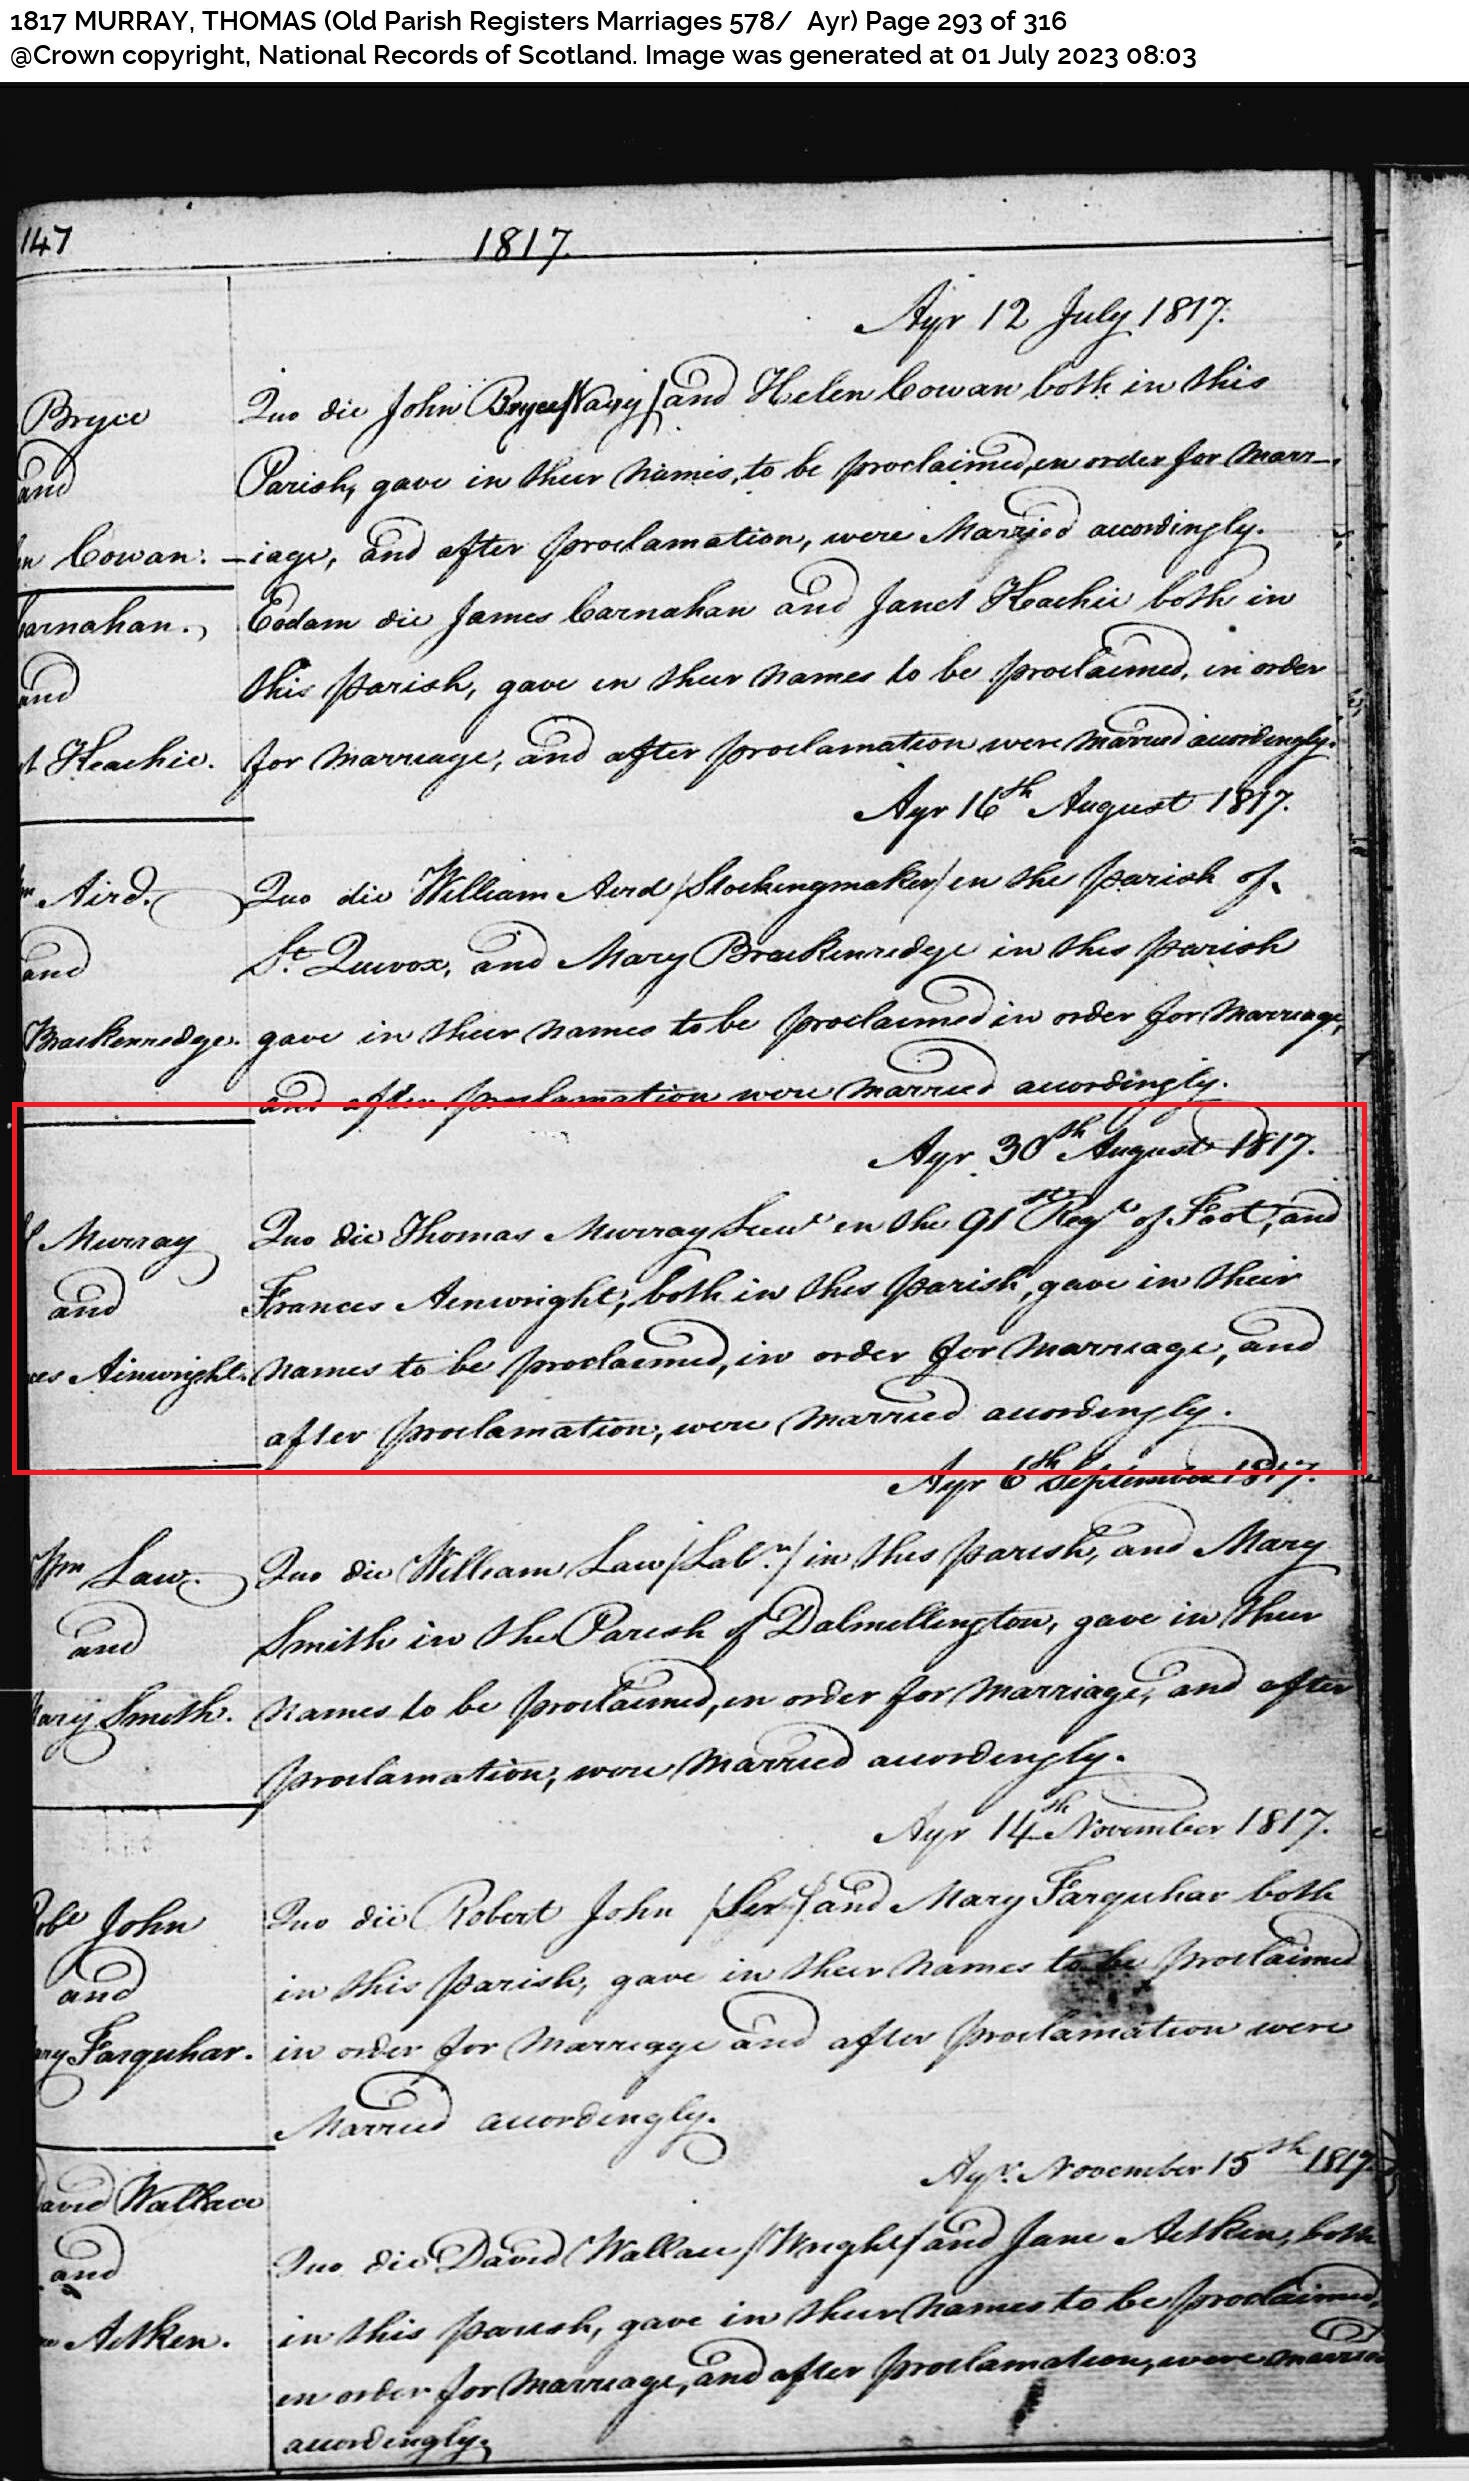 1817 MURRAY, THOMAS (Old Parish Registers Marriages 578/ Ayr) Page 293 of 316
@Crown copyright, National Records of Scotland. Image was generated at 01 July 2023 08:03
147
1817.
Ayr 12 July 1817.
Bryce
and
Cowan.
Quo die John Bryce /Navy/ and Helen Cowan both in this
Parish, gave in their names, to be proclaimed, in order for Marr-
-iage, and after proclamation, were Married accordingly.
Carnahan.
and
Keachie.
Eodam die James Carnahan and Janet Keachie both in
this parish, gave in their names to be proclaimed, in order
for marriage, and after proclamation were married accordingly.
Ayr 16th August 1817.
Aird.
and
Brackenredge.
Quo die William Aird /Stockingmaker/ in the parish of
St. Quivox, and Mary Brackenredge in this parish
gave in their names to be proclaimed in order for marriage,
and after proclamation were married accordingly.
Ayr 30th August 1817.
Murray
and
ces Ainwright.
Quo die Thomas Murray Lieut. in the 91st Regt of Foot, and
Frances Ainwright, both in this parish, gave in their
names to be proclaimed, in order for marriage, and
after proclamation, were married accordingly.
Ayr 6th September 1817.
Wm Law.
and
Mary Smith.
Quo die William Law /Labr./ in this parish, and Mary
Smith in the Parish of Dalmellington, gave in their
names to be proclaimed, in order for marriage, and after
proclamation, were married accordingly.
Ayr 14th November 1817.
Robt John
and
Mary Farquhar.
Quo die Robert John /Ser/ and Mary Farquhar both
in this parish, gave in their names to be proclaimed
in order for marriage and after proclamation were
Married accordingly.
Ayr. November 15th 1817
David Wallace
and
Aitken.
Quo die David Wallace /Wright/ and Jane Aitken, both
in this parish, gave in their names to be proclaimed,
in order for marriage, and after proclamation, were married
accordingly.